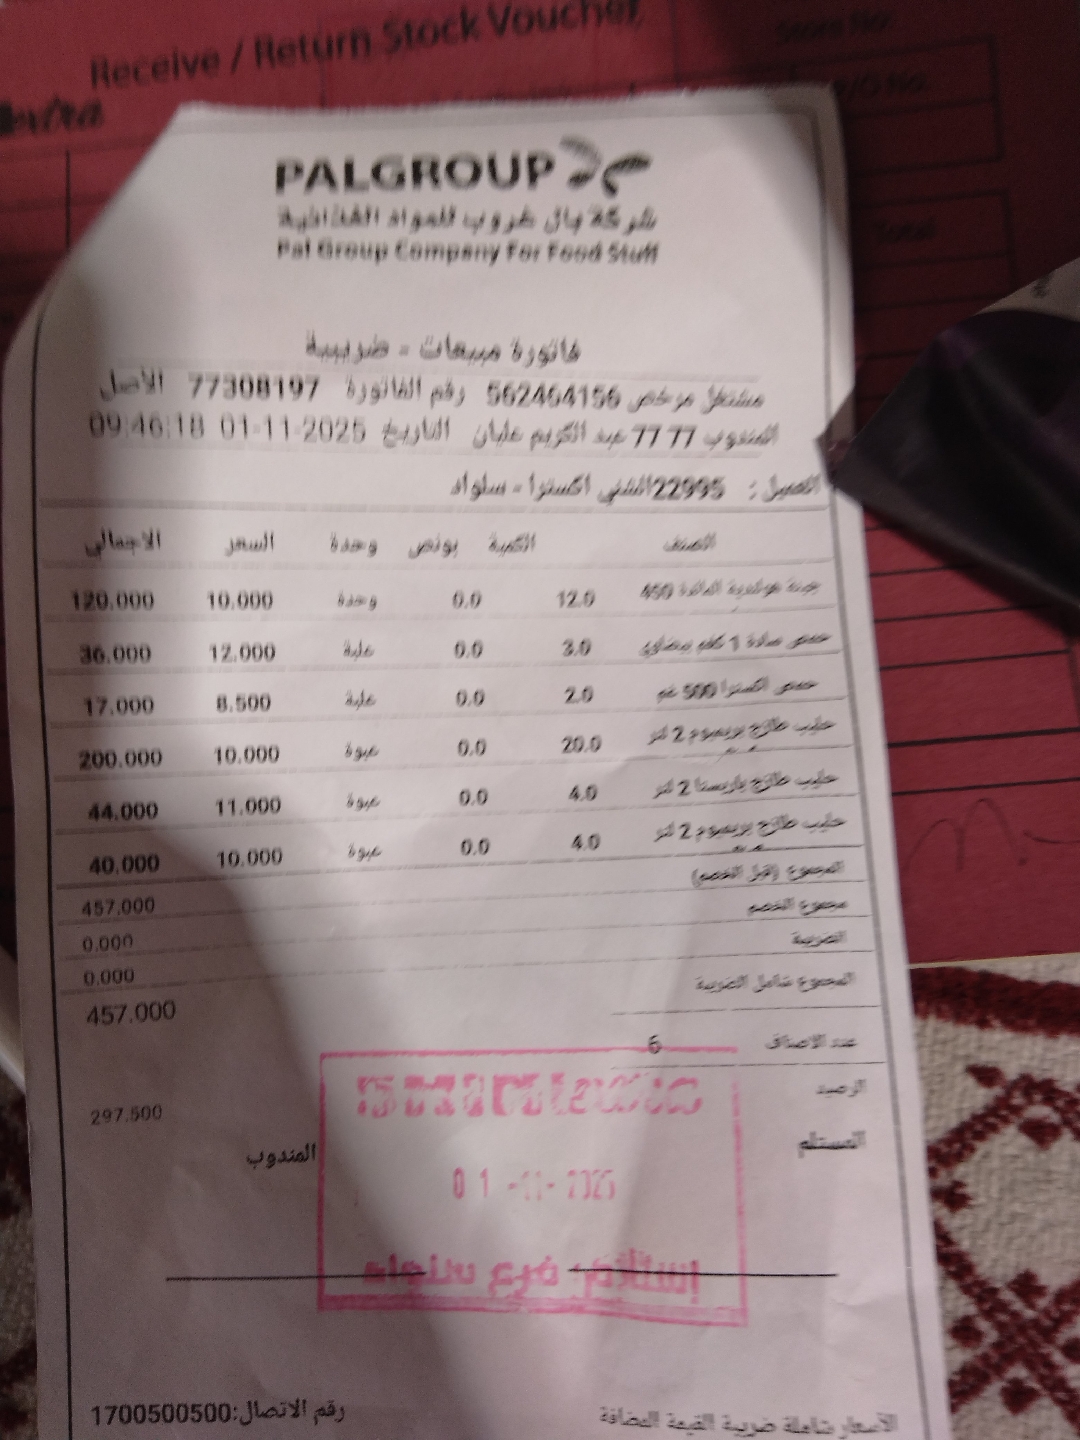 Receive / Return Stock Voucher
Store No.
P/O No.
Total
PALGROUP
شركة بال غروب للمواد الغذائية
Pal Group Company For Food Stuff
فاتورة مبيعات - ضريبية
مشتغل مرخص 562464156 رقم الفاتورة 77308197 الأصل
المندوب 77 77 عبد الكريم عليان التاريخ 01-11-2025 09:46:18
العميل : 22995 الشني اكسترا - سلواد
الصنف الكمية بونص وحدة السعر الاجمالي
450 12.0 0.0 وحدة 10.000 120.000
حمص سادة 1 كغم 3.0 0.0 علبة 12.000 36.000
حمص اكسترا 500 غم 2.0 0.0 علبة 8.500 17.000
حليب طازج بريميوم 2 لتر 20.0 0.0 عبوة 10.000 200.000
حليب طازج باريستا 2 لتر 4.0 0.0 عبوة 11.000 44.000
حليب طازج بريميوم 2 لتر 4.0 0.0 عبوة 10.000 40.000
المجموع (قبل الخصم)
457.000
مجموع الخصم
0.000
الضريبة
0.000
المجموع شامل الضريبة
457.000
عدد الاصناف 6
الرصيد
297.500
المستلم المندوب
01-11-2025
فرع سلواد
رقم الاتصال:1700500500
الأسعار شاملة ضريبة القيمة المضافة